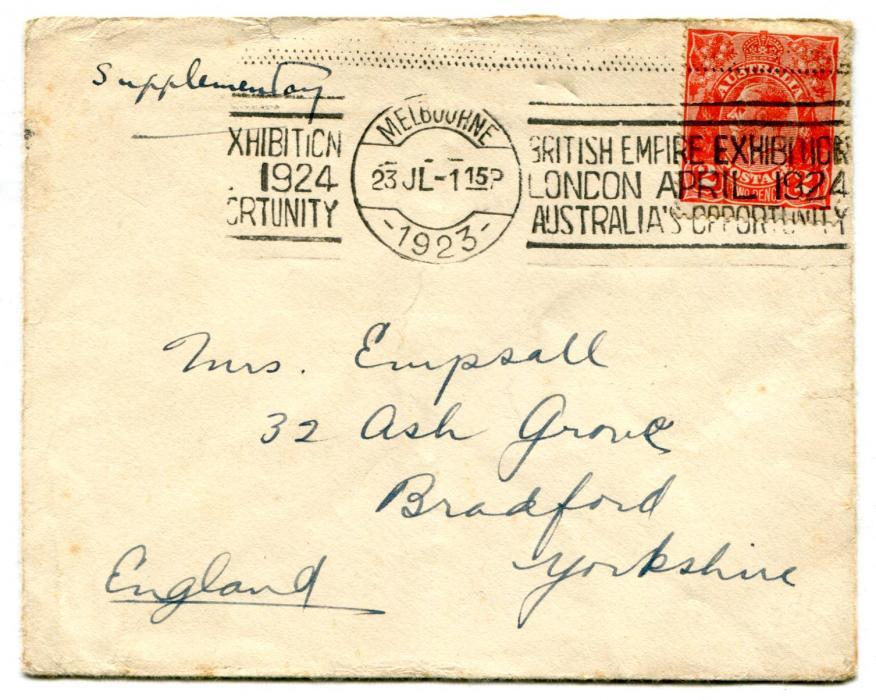 Supplementary
XHIBITION
1924
ORTUNITY
MELBOURNE
23 JL-1 15P
-1923-
BRITISH EMPIRE EXHIBITION
LONDON APRIL 1924
AUSTRALIA'S OPPORTUNITY
AUSTRALIA
POSTAGE
TWO PENCE
Mrs. Empsall
32 Ash Grove
Bradford
Yorkshire
England